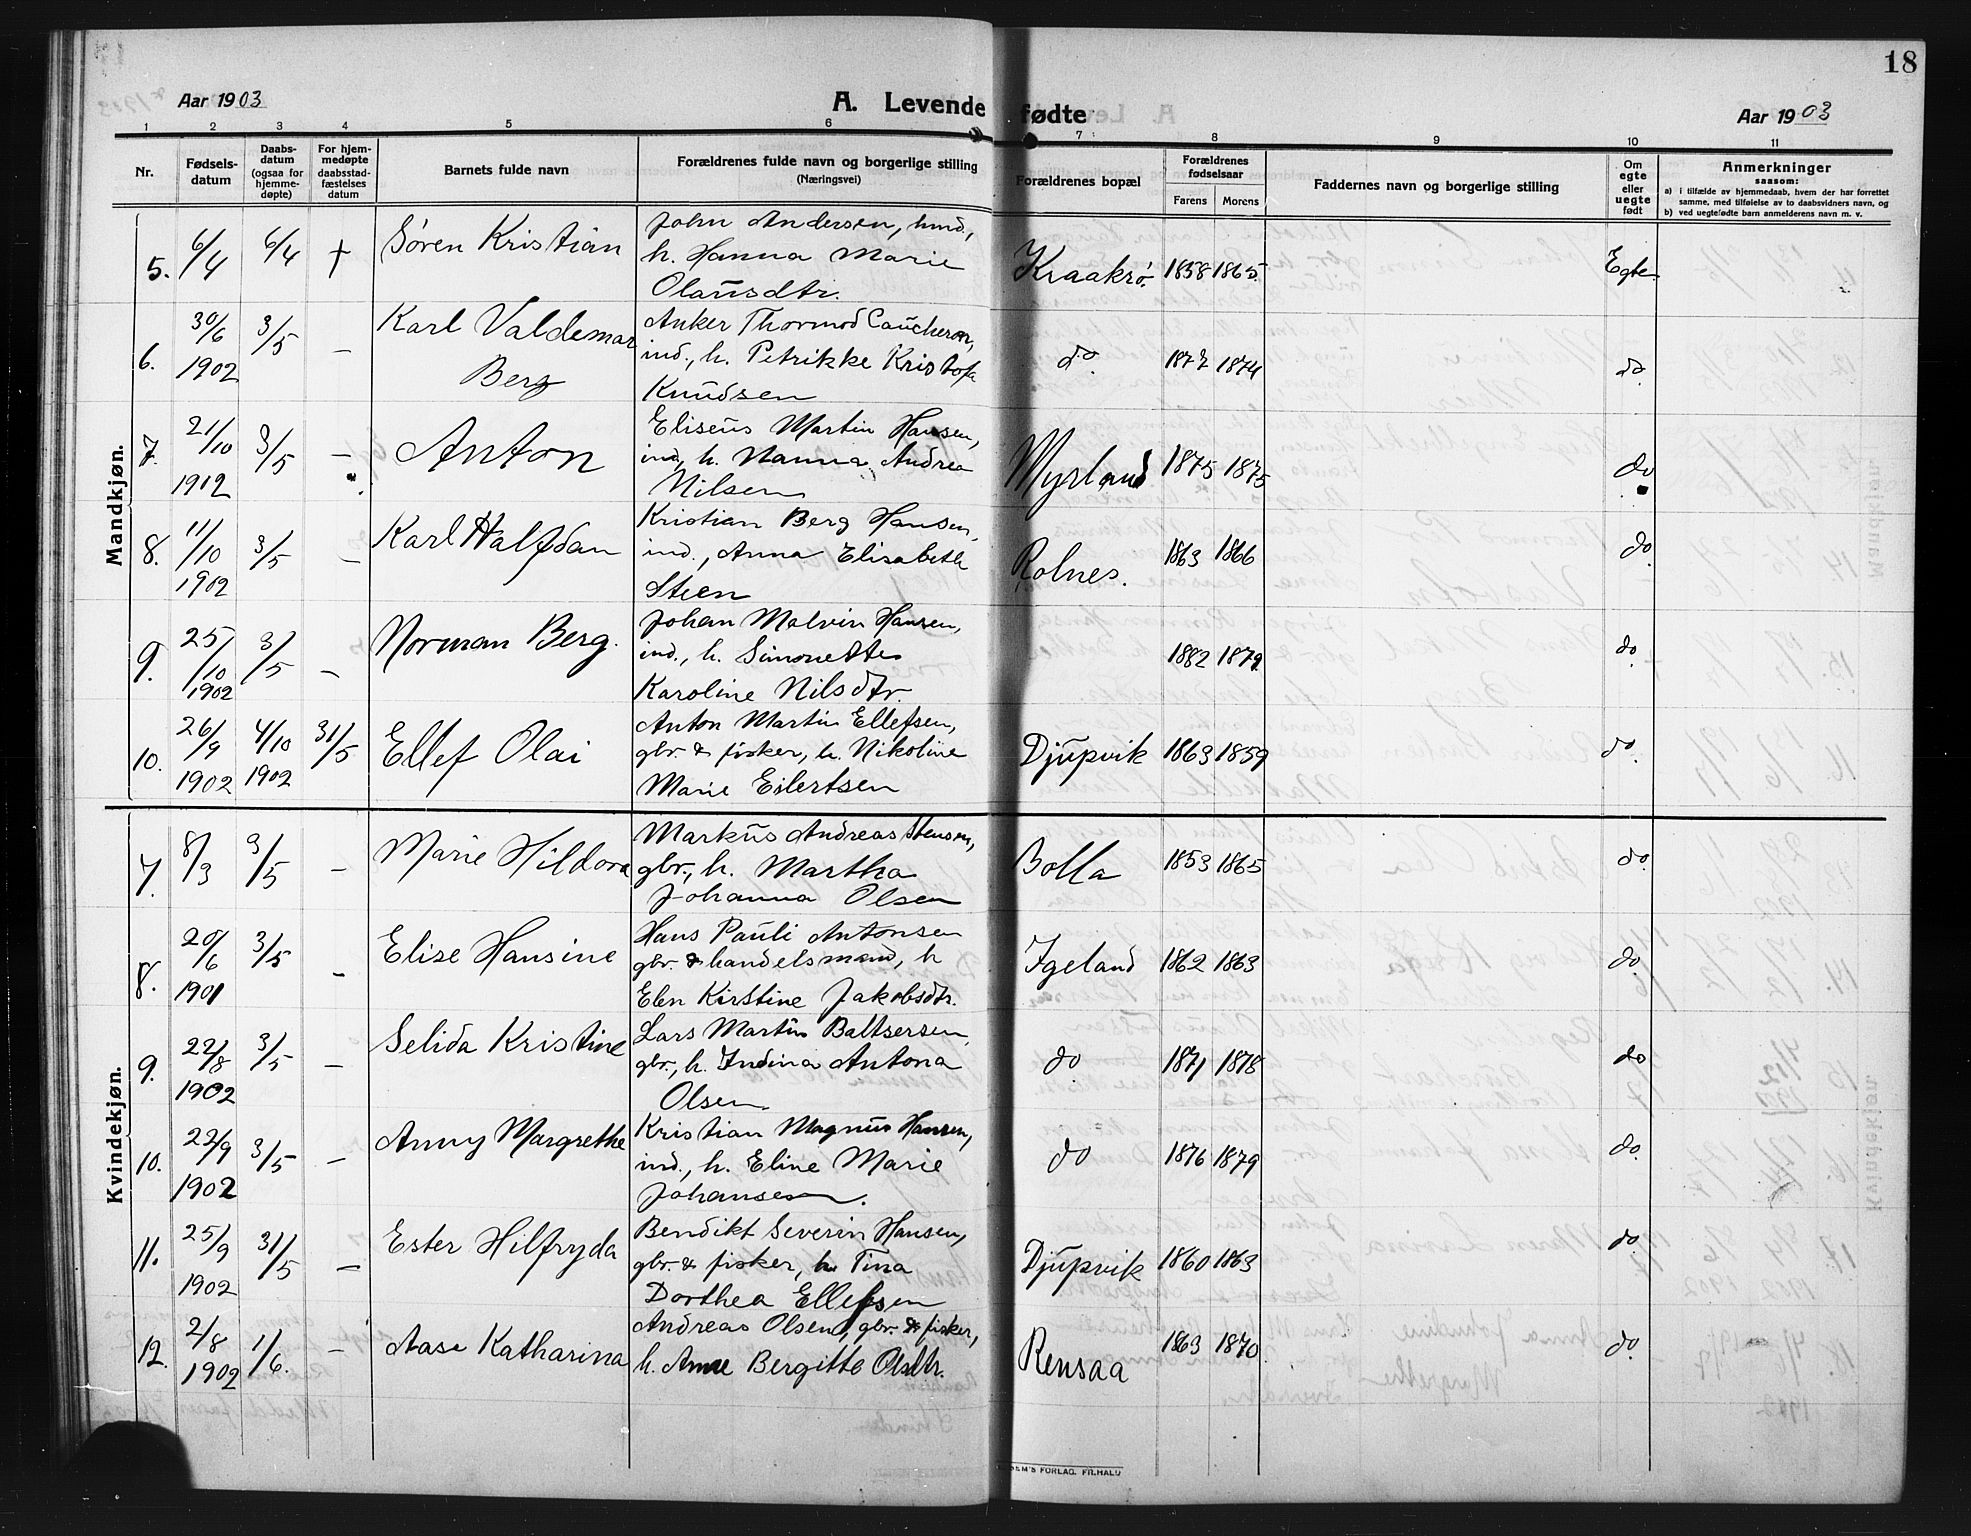 18
Aar 1903
A. Levende fødte
Aar 1903
1 2 3 4 5 6 7 8 9 10 11
Nr.
Fødsels-
datum
Daabs-
datum
(ogsaa for
hjemme-
døpte)
For hjem-
medøpte
daabsstad-
fæstelses
datum
Barnets fulde navn
Forældrenes fulde navn og borgerlige stilling
(Næringsvei)
Forældrenes bopæl
Forældrenes
fødselsaar
Farens Morens
Faddernes navn og borgerlige stilling
Om
egte
eller
uegte
født
Anmerkninger
saasom:
a) i tilfælde av hjemmedaab, hvem der har forrettet
samme, med tilføielse av to daabsvidners navn, og
b) ved uegtefødte barn anmelderens navn m. v.
Mandkjøn.
5. 6/4 6/4 + Søren Kristian
John Andersen, innd.,
h. Hanna Marie
Olausdtr.
Kraakrø. 1858 1865. Egte
6. 30/6 1902 3/5 — Karl Valdemar
Berg
Anker Thormod Caucheron,
ind., h. Petrikke Kristofa
Knudsen
do. 1877 1874 do
7. 21/10 1902 3/5 — Anton
Eliseus Martin Hansen,
ind, h. Nanna Andrea
Nilsen
Myrland 1875 1875 do
8. 11/10 1902 3/5 — Karl Halfdan
Kristian Berg Hansen,
ind., Anna Elisabeth
Steen
Rolnes. 1863 1866 do.
9. 25/10 1902 3/5 — Norman Berg.
Johan Malvin Hansen,
ind., h. Simonette
Karoline Nilsdtr.
1882 1879 do.
10. 26/9 1902 4/10 1902 31/5 Ellef Olai
Anton Martin Ellefsen,
gbr. & fisker, h. Nikoline
Marie Eilertsen
Djupvik 1863 1859 do.
Kvindekjøn.
7. 8/3 3/5 — Marie Hildora
Markus Andreas Stenson,
gbr., h. Martha
Johanna Olsen
Bolla 1853 1865 do.
8. 20/6 1901 3/5 — Elise Hansine
Hans Pauli Antonsen
gbr. & handelsmand, h
Elen Kirstine Jakobsdtr.
Igeland 1862 1863 do.
9. 22/8 1902 3/5 — Selida Kristine
Lars Martin Baltsersen
gbr., h. Indina Antona
Olsen.
do. 1871 1878 do
10. 22/9 1902 3/5 — Anny Margrethe
Kristian Magnus Hansen,
ind., h. Eline Marie
Johansen.
do 1876 1879 do.
11. 25/9 1902 31/5 — Ester Hilfryda
Bendikt Severin Hansen,
gbr. & fisker, h. Tina
Dorthea Ellefsen
Djupvik 1860 1863 do.
12. 2/8 1902 1/6. — Aase Katharina
Andreas Olsen, gbr. & fisker,
h. Anne Bergitte Olsdtr.
Rensaa 1863 1870 do.
SEM'S FORLAG, FR.HALD